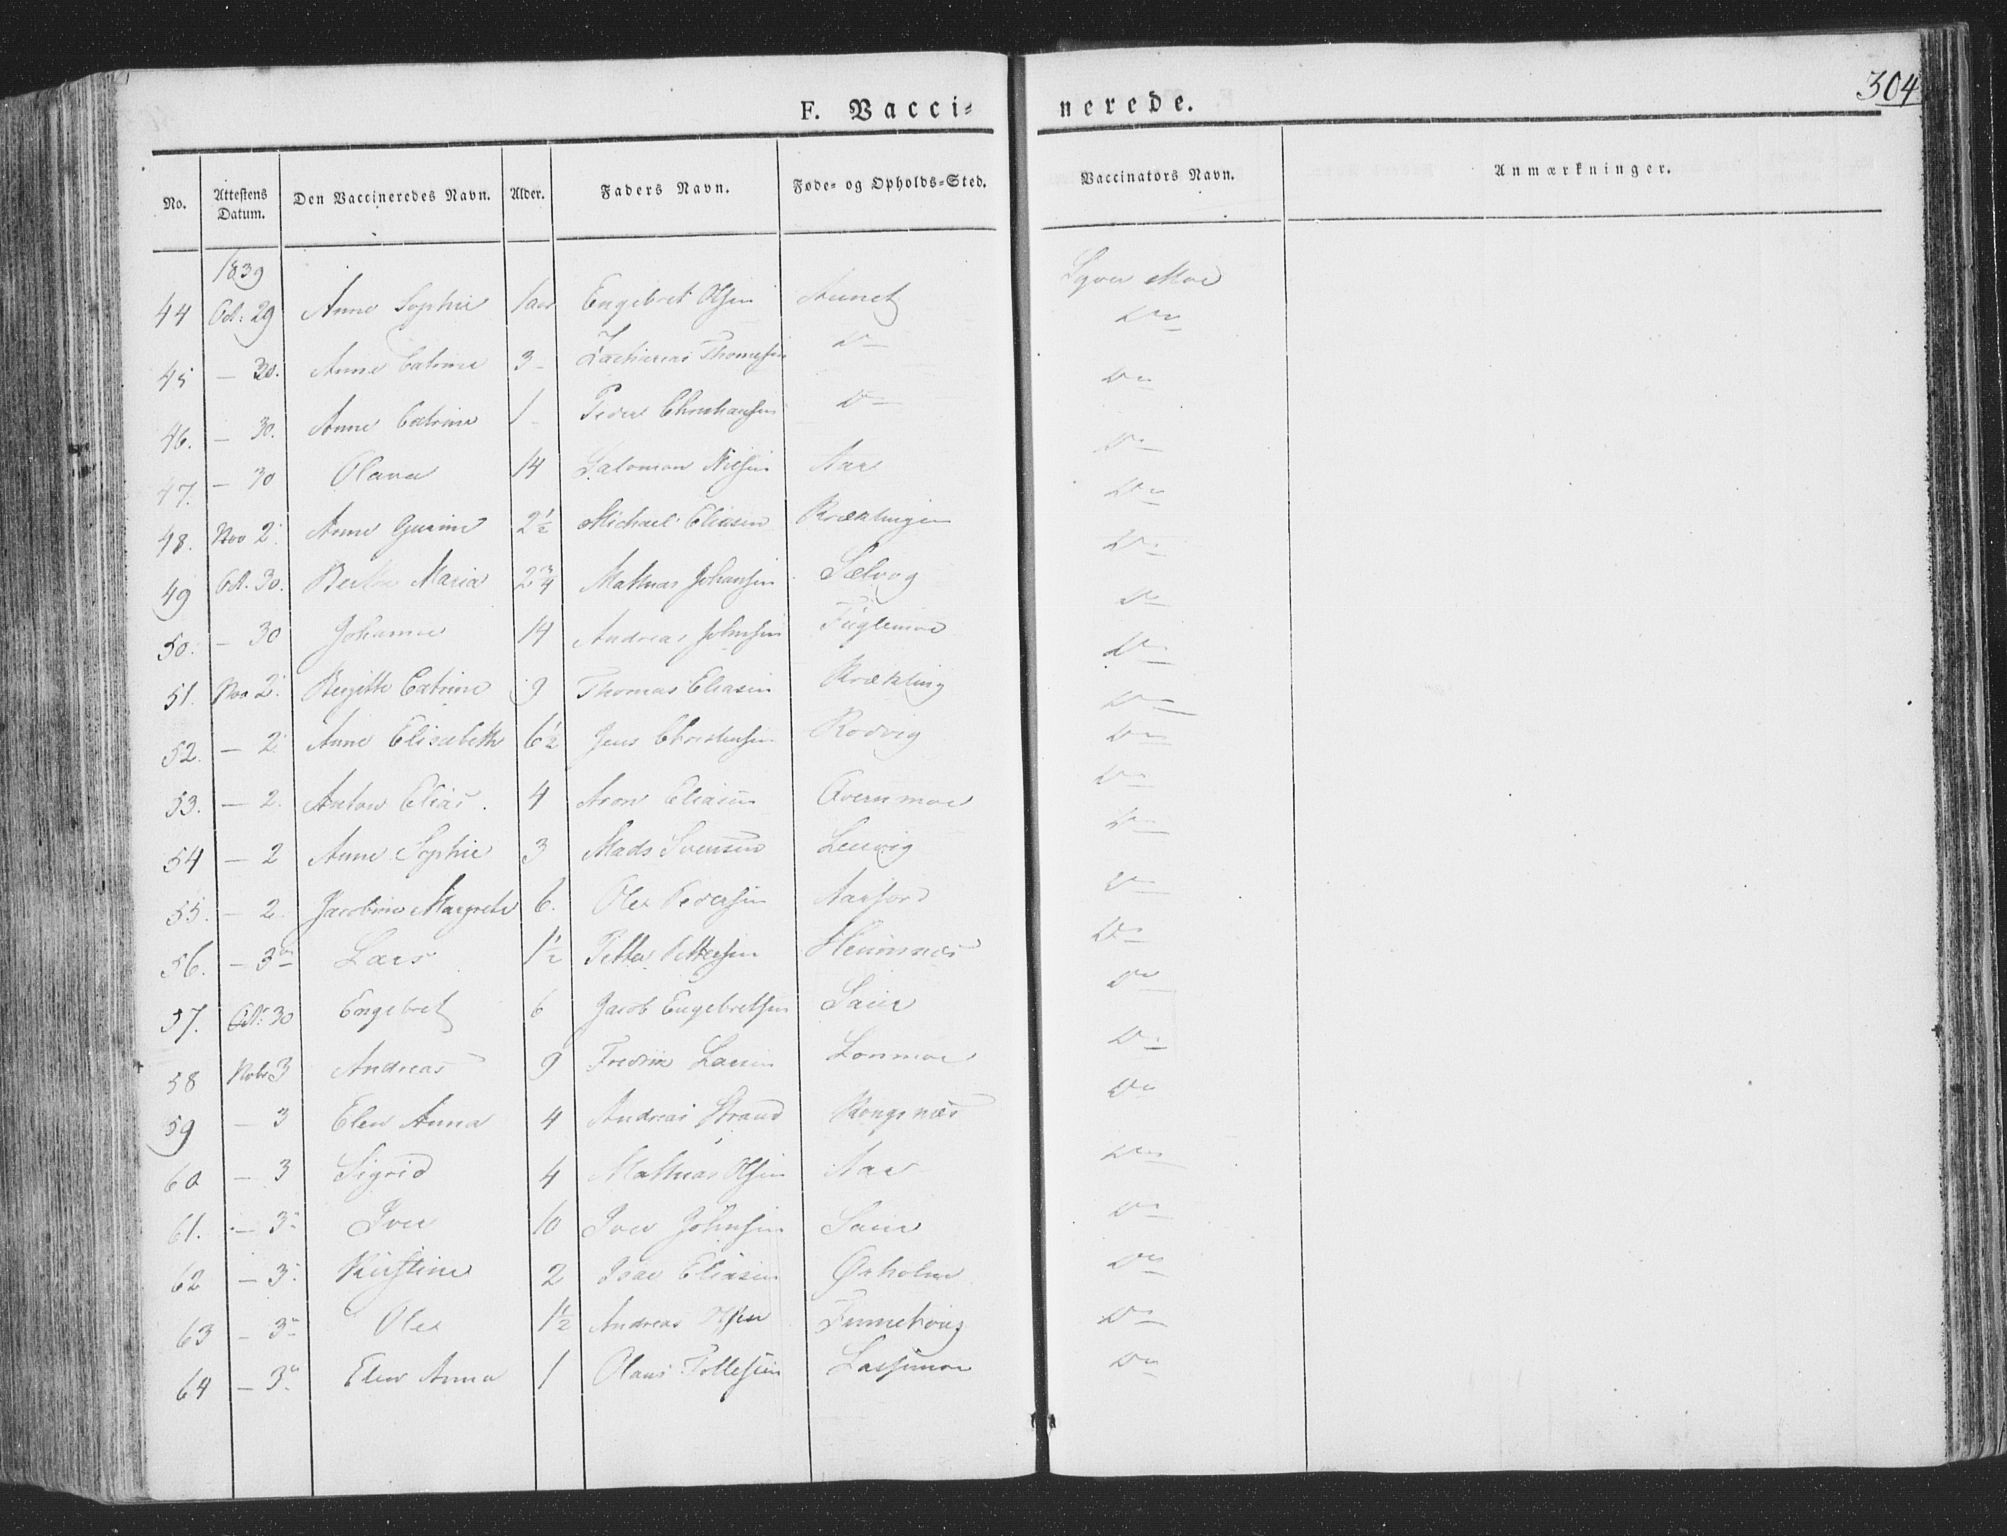 304
F. Vacci- nerede.
No. Attestens Datum. Den Vaccineredes Navn. Alder. Faders Navn. Føde- og Opholds-Sted. Vaccinators Navn. Anmærkninger.
1839
44 Oct: 29 Anne Sophie 1 aar Engebret Olsen Aunet Moe
45 — 30. Anne Catrine 3 - Zacharias Thomesen D— D—
46. — 30. Anne Catrine 1 - Peder Christiansen D— D—
47. — 30 Olava 14 Salomon Nielsen Aar D—
48. Nov 2. Anne Gurine 2½ Michael Eliasen Kræklingen D—
49 Oct. 30. Maria 2¾ Mathias Johansen Sælvog D—
50. — 30 Johanna 14 Andreas Johnsen Fuglemoe D—
51. Nov 2. Birgitte Catrine 9 Thomas Eliasen Krækling D—
52. — 2. Anne Elisabeth 6½ Jens Christensen Rodvig D—
53. — 2. Anton Elias. 4 Aron Eliasen D—
54 — 2 Anne Sophie 3 Mads Svensen Lenvig D—
55. — 2. Jacobine Margrete 6. Ole Pedersen Aarsford D—
56. — 3 Lars 1½ Petter Pettersen Hemnæs D—
57. Oct: 30 Engebret 6 Jacob Engebretsen D—
58 Nobr 3 Andreas 9 Fredrik Larsen Lonmoe D—
59 — 3 Elen Anna 4 Andreas Strand Kongsnæs D—
60 — 3 Sigrid 4 Mathias Olsen Aar D—
61. — 3 Iver 10 Iver Johnsen D—
62 — 3. Kirstine 2 Isac Eliasen Ørholme D—
63 — 3 Ole 1½ Andreas Olsen D—
64 — 3 Elen Anna 1 Olaus Tollesen Lassemoe D—